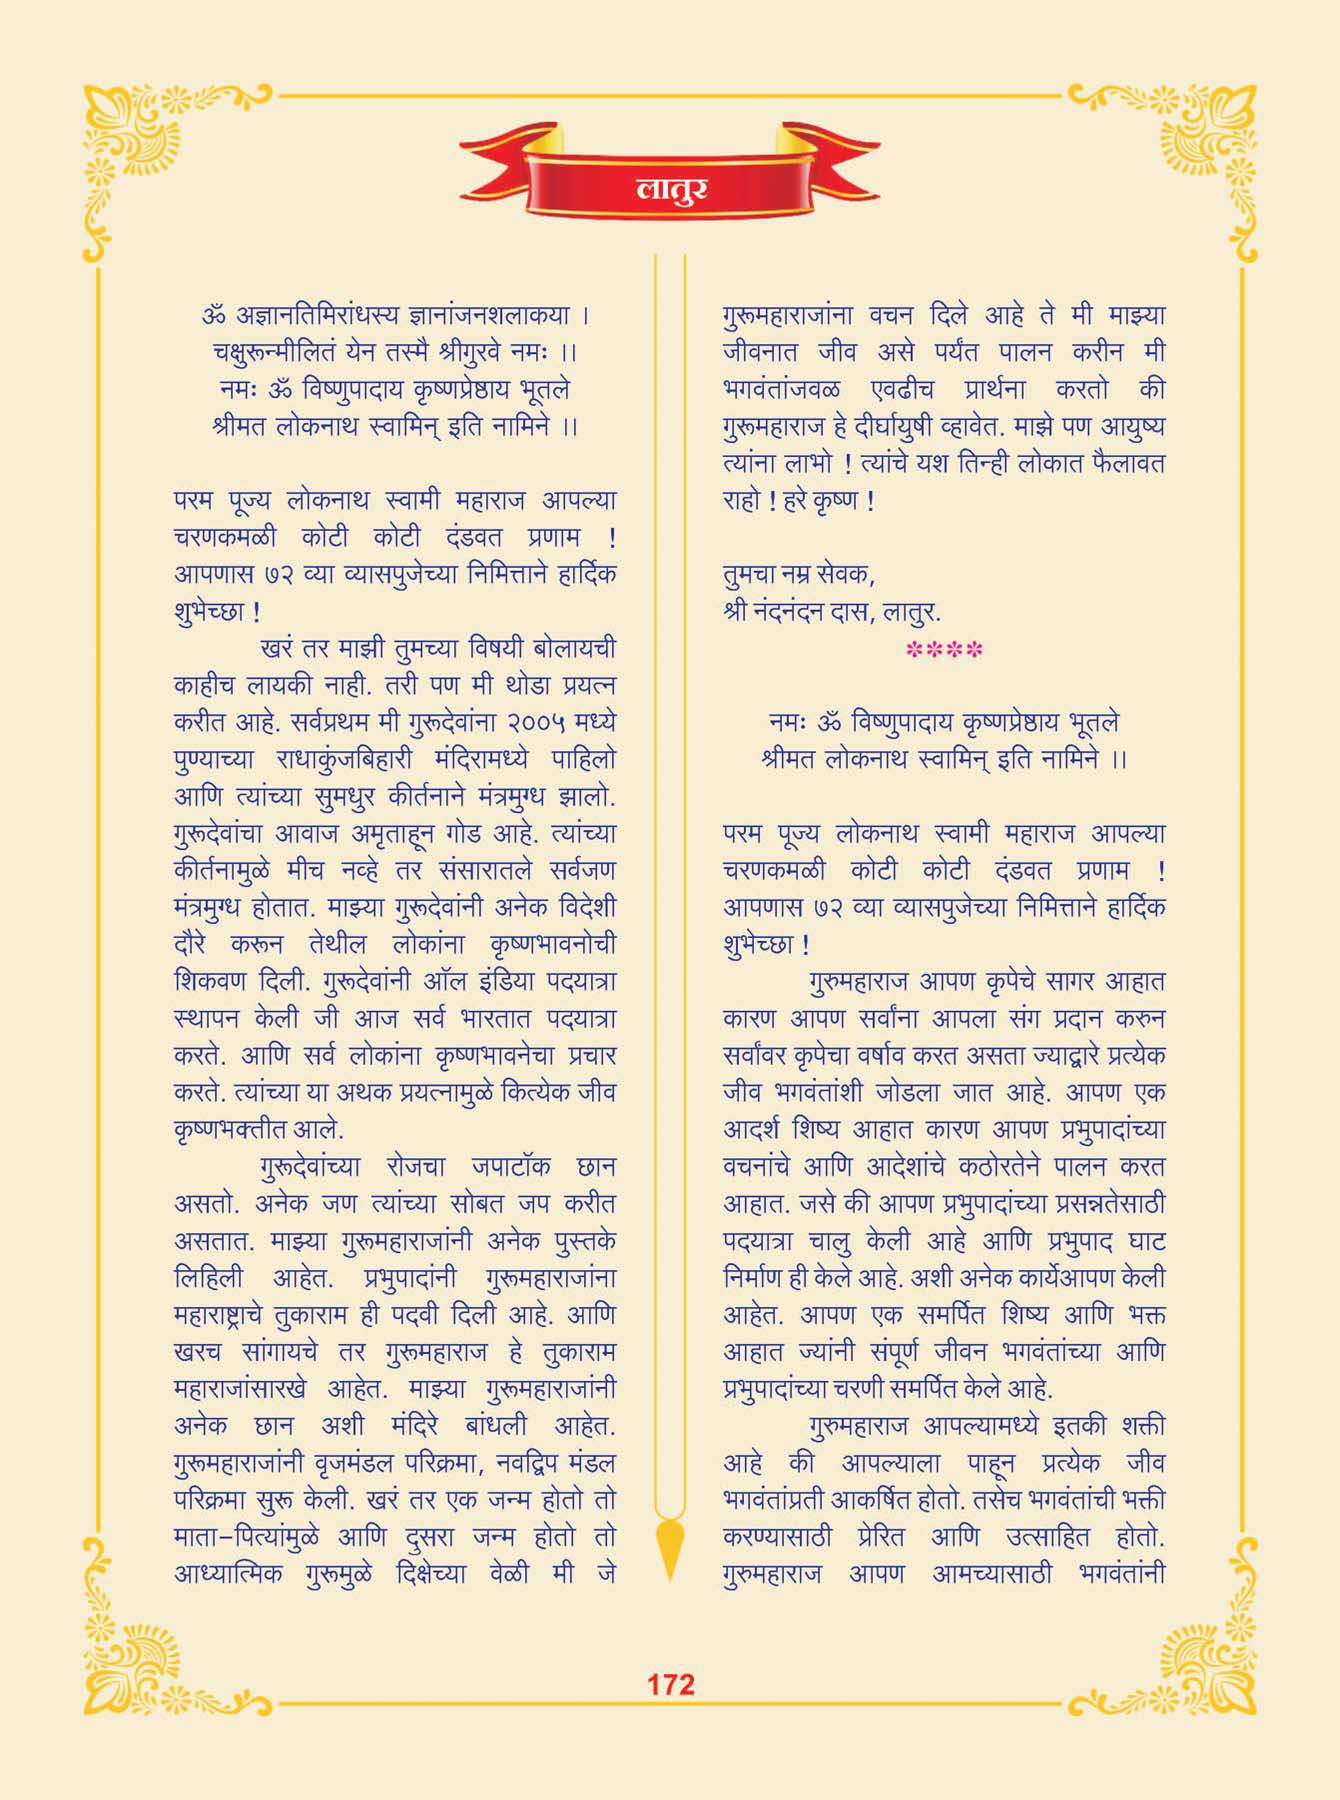 लातुर
ॐ अज्ञानतिमिरांधस्य ज्ञानांजनशलाकया ।
चक्षुरून्मीलितं येन तस्मै श्रीगुरवे नमः ।।
नमः ॐ विष्णुपादाय कृष्णप्रेष्ठाय भूतले
श्रीमत लोकनाथ स्वामिन् इति नामिने ।।
परम पूज्य लोकनाथ स्वामी महाराज आपल्या
चरणकमळी कोटी कोटी दंडवत प्रणाम !
आपणास ७२ व्या व्यासपुजेच्या निमित्ताने हार्दिक
शुभेच्छा !
खरं तर माझी तुमच्या विषयी बोलायची
काहीच लायकी नाही. तरी पण मी थोडा प्रयत्न
करीत आहे. सर्वप्रथम मी गुरूदेवांना २००५ मध्ये
पुण्याच्या राधाकुंजबिहारी मंदिरामध्ये पाहिलो
आणि त्यांच्या सुमधुर कीर्तनाने मंत्रमुग्ध झालो.
गुरूदेवांचा आवाज अमृताहून गोड आहे. त्यांच्या
कीर्तनामुळे मीच नव्हे तर संसारातले सर्वजण
मंत्रमुग्ध होतात. माझ्या गुरूदेवांनी अनेक विदेशी
दौरे करून तेथील लोकांना कृष्णभावनोची
शिकवण दिली. गुरूदेवांनी ऑल इंडिया पदयात्रा
स्थापन केली जी आज सर्व भारतात पदयात्रा
करते. आणि सर्व लोकांना कृष्णभावनेचा प्रचार
करते. त्यांच्या या अथक प्रयत्नामुळे कित्येक जीव
कृष्णभक्तीत आले.
गुरूदेवांच्या रोजचा जपाटॉक छान
असतो. अनेक जण त्यांच्या सोबत जप करीत
असतात. माझ्या गुरूमहाराजांनी अनेक पुस्तके
लिहिली आहेत. प्रभुपादांनी गुरूमहाराजांना
महाराष्ट्राचे तुकाराम ही पदवी दिली आहे. आणि
खरच सांगायचे तर गुरूमहाराज हे तुकाराम
महाराजांसारखे आहेत. माझ्या गुरूमहाराजांनी
अनेक छान अशी मंदिरे बांधली आहेत.
गुरूमहाराजांनी वृजमंडल परिक्रमा, नवद्विप मंडल
परिक्रमा सुरू केली. खरं तर एक जन्म होतो तो
माता-पित्यांमुळे आणि दुसरा जन्म होतो तो
आध्यात्मिक गुरूमुळे दिक्षेच्या वेळी मी जे
गुरूमहाराजांना वचन दिले आहे ते मी माझ्या
जीवनात जीव असे पर्यंत पालन करीन मी
भगवंतांजवळ एवढीच प्रार्थना करतो की
गुरूमहाराज हे दीर्घायुषी व्हावेत. माझे पण आयुष्य
त्यांना लाभो ! त्यांचे यश तिन्ही लोकात फैलावत
राहो ! हरे कृष्ण !
तुमचा नम्र सेवक,
श्री नंदनंदन दास, लातुर.
****
नमः ॐ विष्णुपादाय कृष्णप्रेष्ठाय भूतले
श्रीमत लोकनाथ स्वामिन् इति नामिने ।।
परम पूज्य लोकनाथ स्वामी महाराज आपल्या
चरणकमळी कोटी कोटी दंडवत प्रणाम !
आपणास ७२ व्या व्यासपुजेच्या निमित्ताने हार्दिक
शुभेच्छा !
गुरुमहाराज आपण कृपेचे सागर आहात
कारण आपण सर्वांना आपला संग प्रदान करुन
सर्वांवर कृपेचा वर्षाव करत असता ज्याद्वारे प्रत्येक
जीव भगवंतांशी जोडला जात आहे. आपण एक
आदर्श शिष्य आहात कारण आपण प्रभुपादांच्या
वचनांचे आणि आदेशांचे कठोरतेने पालन करत
आहात. जसे की आपण प्रभुपादांच्या प्रसन्नतेसाठी
पदयात्रा चालु केली आहे आणि प्रभुपाद घाट
निर्माण ही केले आहे. अशी अनेक कार्येआपण केली
आहेत. आपण एक समर्पित शिष्य आणि भक्त
आहात ज्यांनी संपूर्ण जीवन भगवंतांच्या आणि
प्रभुपादांच्या चरणी समर्पित केले आहे.
गुरुमहाराज आपल्यामध्ये इतकी शक्ती
आहे की आपल्याला पाहून प्रत्येक जीव
भगवंतांप्रती आकर्षित होतो. तसेच भगवंतांची भक्ती
करण्यासाठी प्रेरित आणि उत्साहित होतो.
गुरुमहाराज आपण आमच्यासाठी भगवंतांनी
172